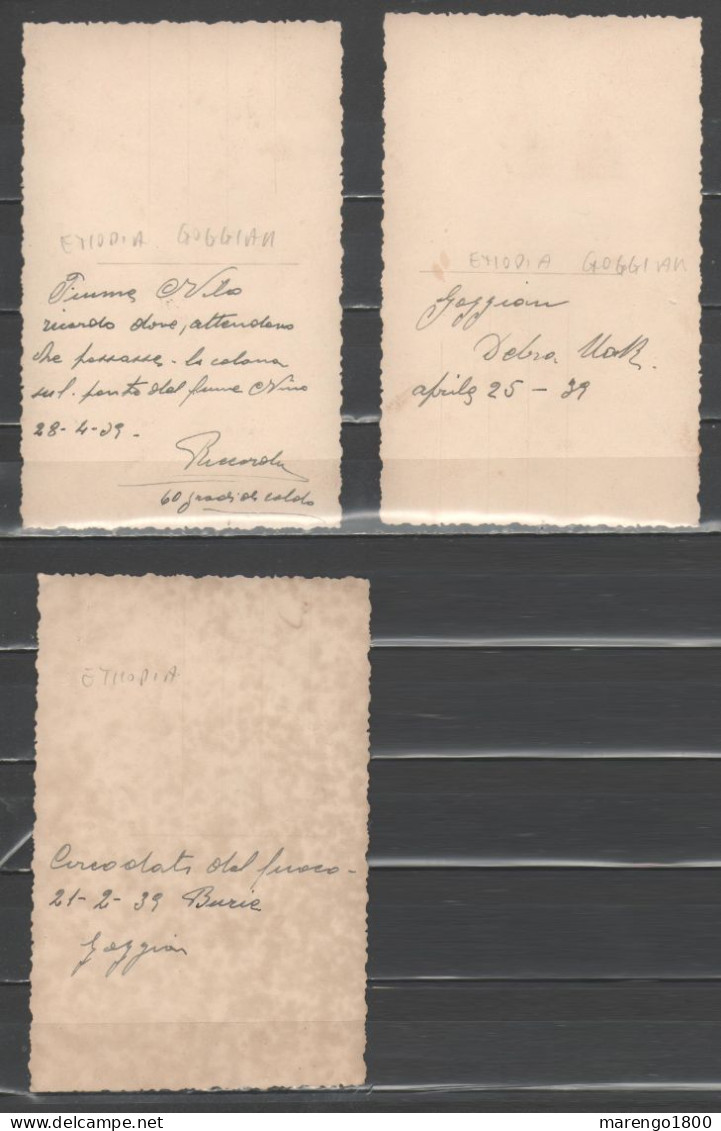 ETIOPIA GOGGIAM
Fiume Nilo
ricordo dove, attendevo
che passasse la colona
sul ponte del fiume Nilo
28-4-39-
Riccordo
60 gradi di caldo
ETIOPIA GOGGIAM
Goggiam
Debra
aprile 25-39
ETIOPIA
Circodati del fuoco-
21-2-39 Burie
Goggiam
marengo1800